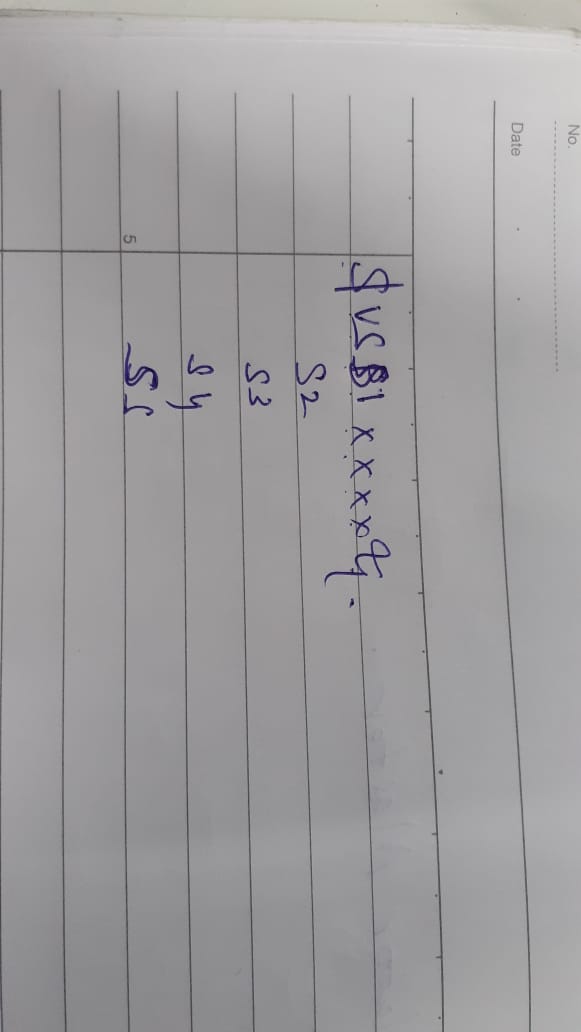 No.
Date
$ VS S1 x x x x
S2
S3
S4
5 S5